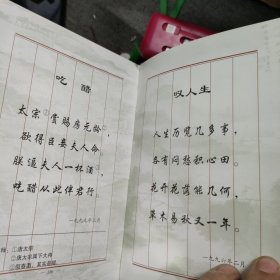 吃醋
太宗①赏赐房元龄②，
欲得臣妻夫人命。
朕逼夫人一杯酒，
吃醋从此伴君行。
一九九六年二月
①唐太宗
②唐太宗属下大将
叹人生
人生历览几多事，
各有问愁积心田。
花开花落能几何，
草木易秋又一年。
一九九六年二月